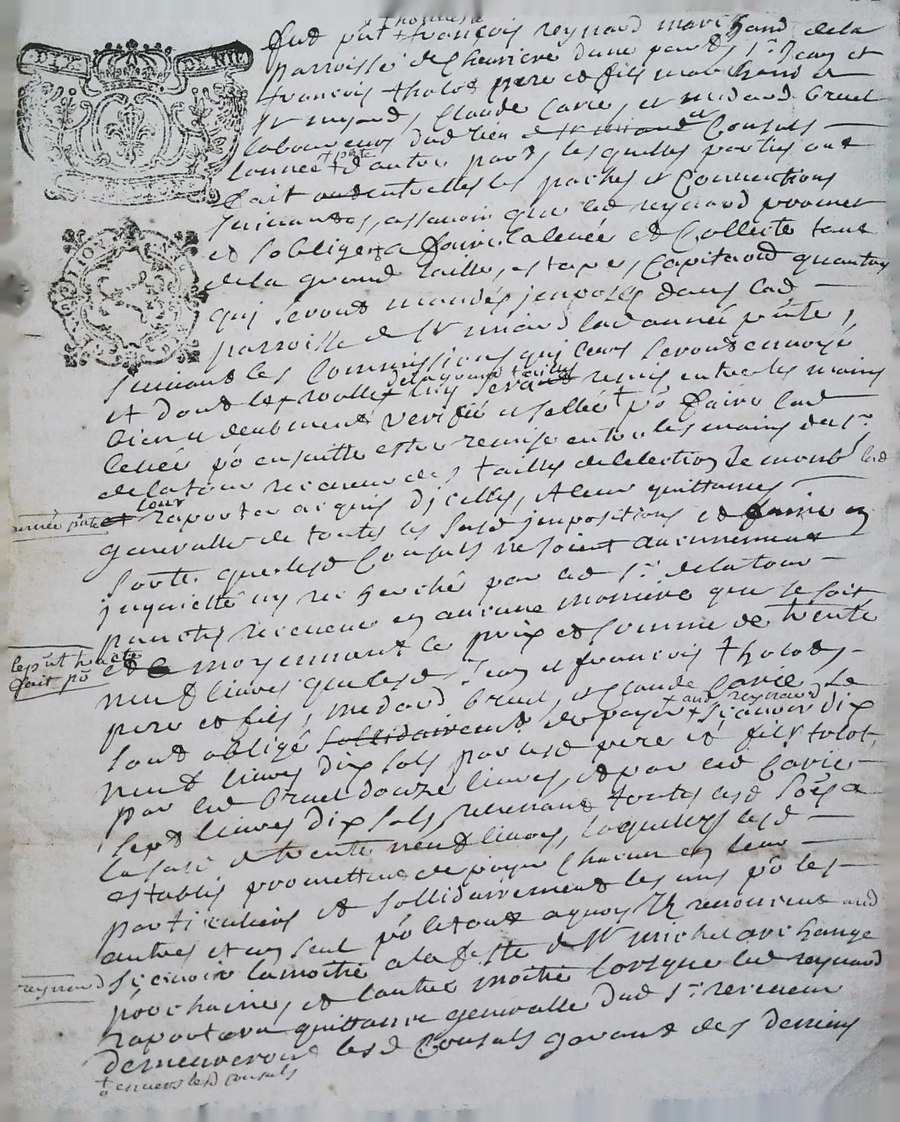 DIX DENIE
LION
thoumise
fut pnt + françois reynard marchand de la
parroisse de cheniere dune par & Sr Jean et
françois tholot pere et fils marchand a
St myard, Claude Carie, et medard bruel
laboureurs dud lieu Consuls
lannee pnte dautre pard, lesquelles parties ont
fait entrelles les paches et Conventions
suivantes, assavoir que led reynard promet
et soblige a faire la levée et Collecte tant
de la grand taille, estape, Capitaon quautres
qui seront mandés jmposés dans lad
parroisse de St miard lad année pnte,
suivant les Commissions qui leurs seront envoyé
et dont les rolles de la grand taille luy remis entre les mains
bien et deubment verifié et sellée po faire lad
levée po ensuitte estre remise entre les mains du Sr
de la tour receveur des tailles de lelection de montb
année pnte et raporter acquis dicelles, et leur quittances
generalle de toutes les susd jmpositions et en
sorte que lesd Consuls ne soient aucunement
jnquietté ny recherché par led Sr de la tour
receveur en aucune maniere que ce soit
le pnt traicté fait po
moyennant le prix et somme de trente
neuf livres que lesd Jean et françois tholot
pere et fils, medard bruel, et claude Carie se
sont obligé sollidairement de payer + aud reynard scavoir dix
neuf livres dix sols par lesd pere et fils tolot,
par led bruel douze livres, et par led Carie
sept livres dix sols, revenant toutes lesd sões a
la susd de trente neuf livres, laquelles lesd
establis promettent de payer chacun en leur
particuliers et sollidairement les uns po les
autres et un seul po le tout a quoy ils renoncent aud
reynard scavoir la moitié a la feste de St michel archange
prochaine, et lautre moitié lorsque led reynard
raportera quittance generalle dud Sr receveur
demeureront lesd Consuls garant des deniers
+ envers lesd consuls